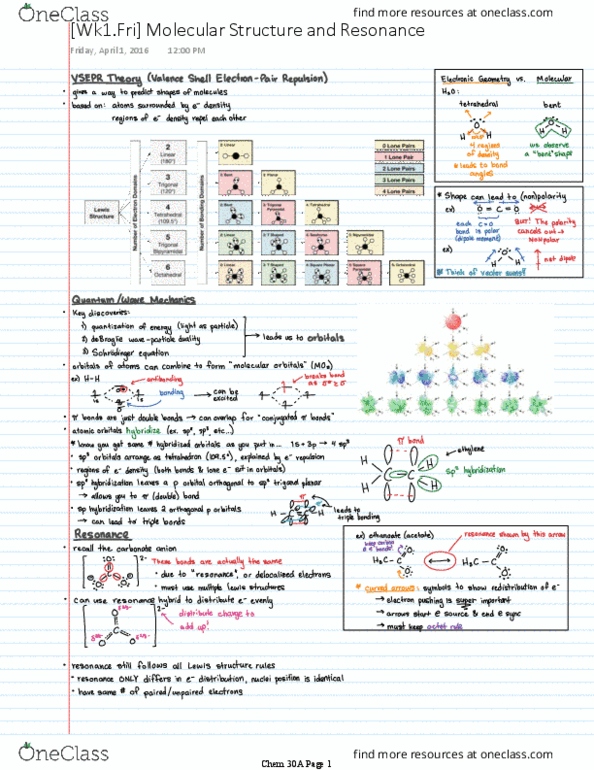 OneClass
find more resources at oneclass.com
[Wk1.Fri] Molecular Structure and Resonance
Friday, April 1, 2016 12:00 PM
VSEPR Theory (Valence Shell Electron-Pair Repulsion)
• gives a way to predict shapes of molecules
• based on: atoms surrounded by e⁻ density
regions of e⁻ density repel each other
Electronic Geometry vs. Molecular
H₂O:
tetrahedral
bent
O
H H
O
H H
4 regions
of density
* leads to bond
angles
we observe
a "bent" shape
Lewis
Structure
Number of Electron Domains
2
Linear
(180°)
3
Trigonal
(120°)
4
Tetrahedral
(109.5°)
5
Trigonal
Bipyramidal
6
Octahedral
Number of Bonding Domains
0 Lone Pairs
1 Lone Pair
2 Lone Pairs
3 Lone Pairs
4 Lone Pairs
* Shape can lead to (non)polarity
ex) O = C = O
each C=O
bond is polar
(dipole moment)
BUT! The polarity
cancels out →
Nonpolar
ex)
O
H H
net dipole
* Think of vector sums!!
Quantum/Wave Mechanics
• Key discoveries:
1) quantization of energy (light as particle)
2) deBroglie wave-particle duality
3) Schrödinger equation
leads us to orbitals
• orbitals of atoms can combine to form "molecular orbitals" (MOs)
ex) H-H
antibonding
bonding
1s
can be
excited
breaks bond
as σ* ≥ σ
• π bonds are just double bonds → can overlap for "conjugated π bonds"
• atomic orbitals hybridize (ex. sp³, sp², etc..)
* know you get same # hybridized orbitals as you put in... 1s + 3p → 4 sp³
• sp³ orbitals arrange as tetrahedron (109.5°), explained by e⁻ repulsion
• regions of e⁻ density (both bonds & lone e⁻ sit in orbitals)
• sp² hybridization leaves a p orbital orthogonal to sp² trigonal planar
→ allows you to π (double) bond
• sp hybridization leaves 2 orthogonal p orbitals
→ can lead to triple bonds
π
leads to
triple bonding
π bond
ethylene
H
H
C
C
H
H
sp² hybridization
Resonance
• recall the carbonate anion
2-
These bonds are actually the same
• due to "resonance", or delocalized electrons
• must use multiple lewis structures
• can use resonance hybrid to distribute e⁻ evenly
2-
distribute charge to
add up!
ex) ethanoate (acetate)
resonance shown by this arrow
H₃C - C
O
O
H₃C - C
O
O
* curved arrows: symbols to show redistribution of e⁻
→ electron pushing is super important
→ arrows start @ source & end @ sync
→ must keep octet rule
• resonance still follows all Lewis structure rules
• resonance ONLY differs in e⁻ distribution, nuclei position is identical
• have same # of paired/unpaired electrons
OneClass
find more resources at oneclass.com
Chem 30A Page 1